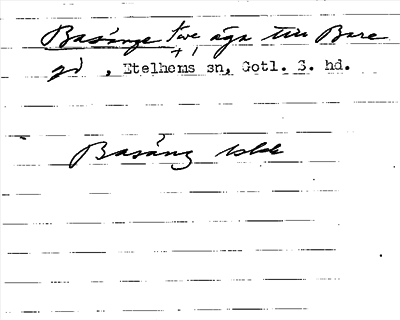 Basänge twe äga till Bare
gd, Etelhems sn, Gotl. S. hd.
Basäng